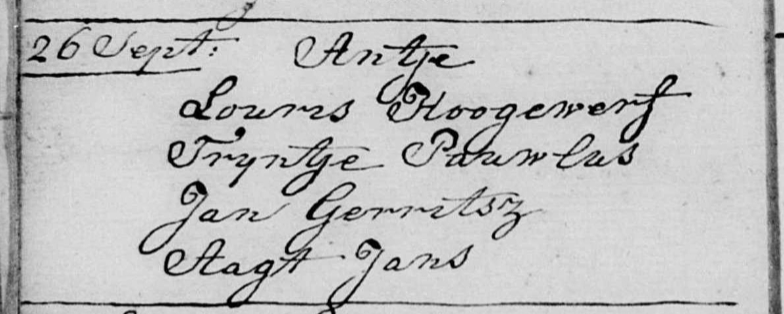 26 Sept: Antje
Louris Hoogewerf
Tryntje Pauwlus
Jan Gerritsz
Aagt Jans